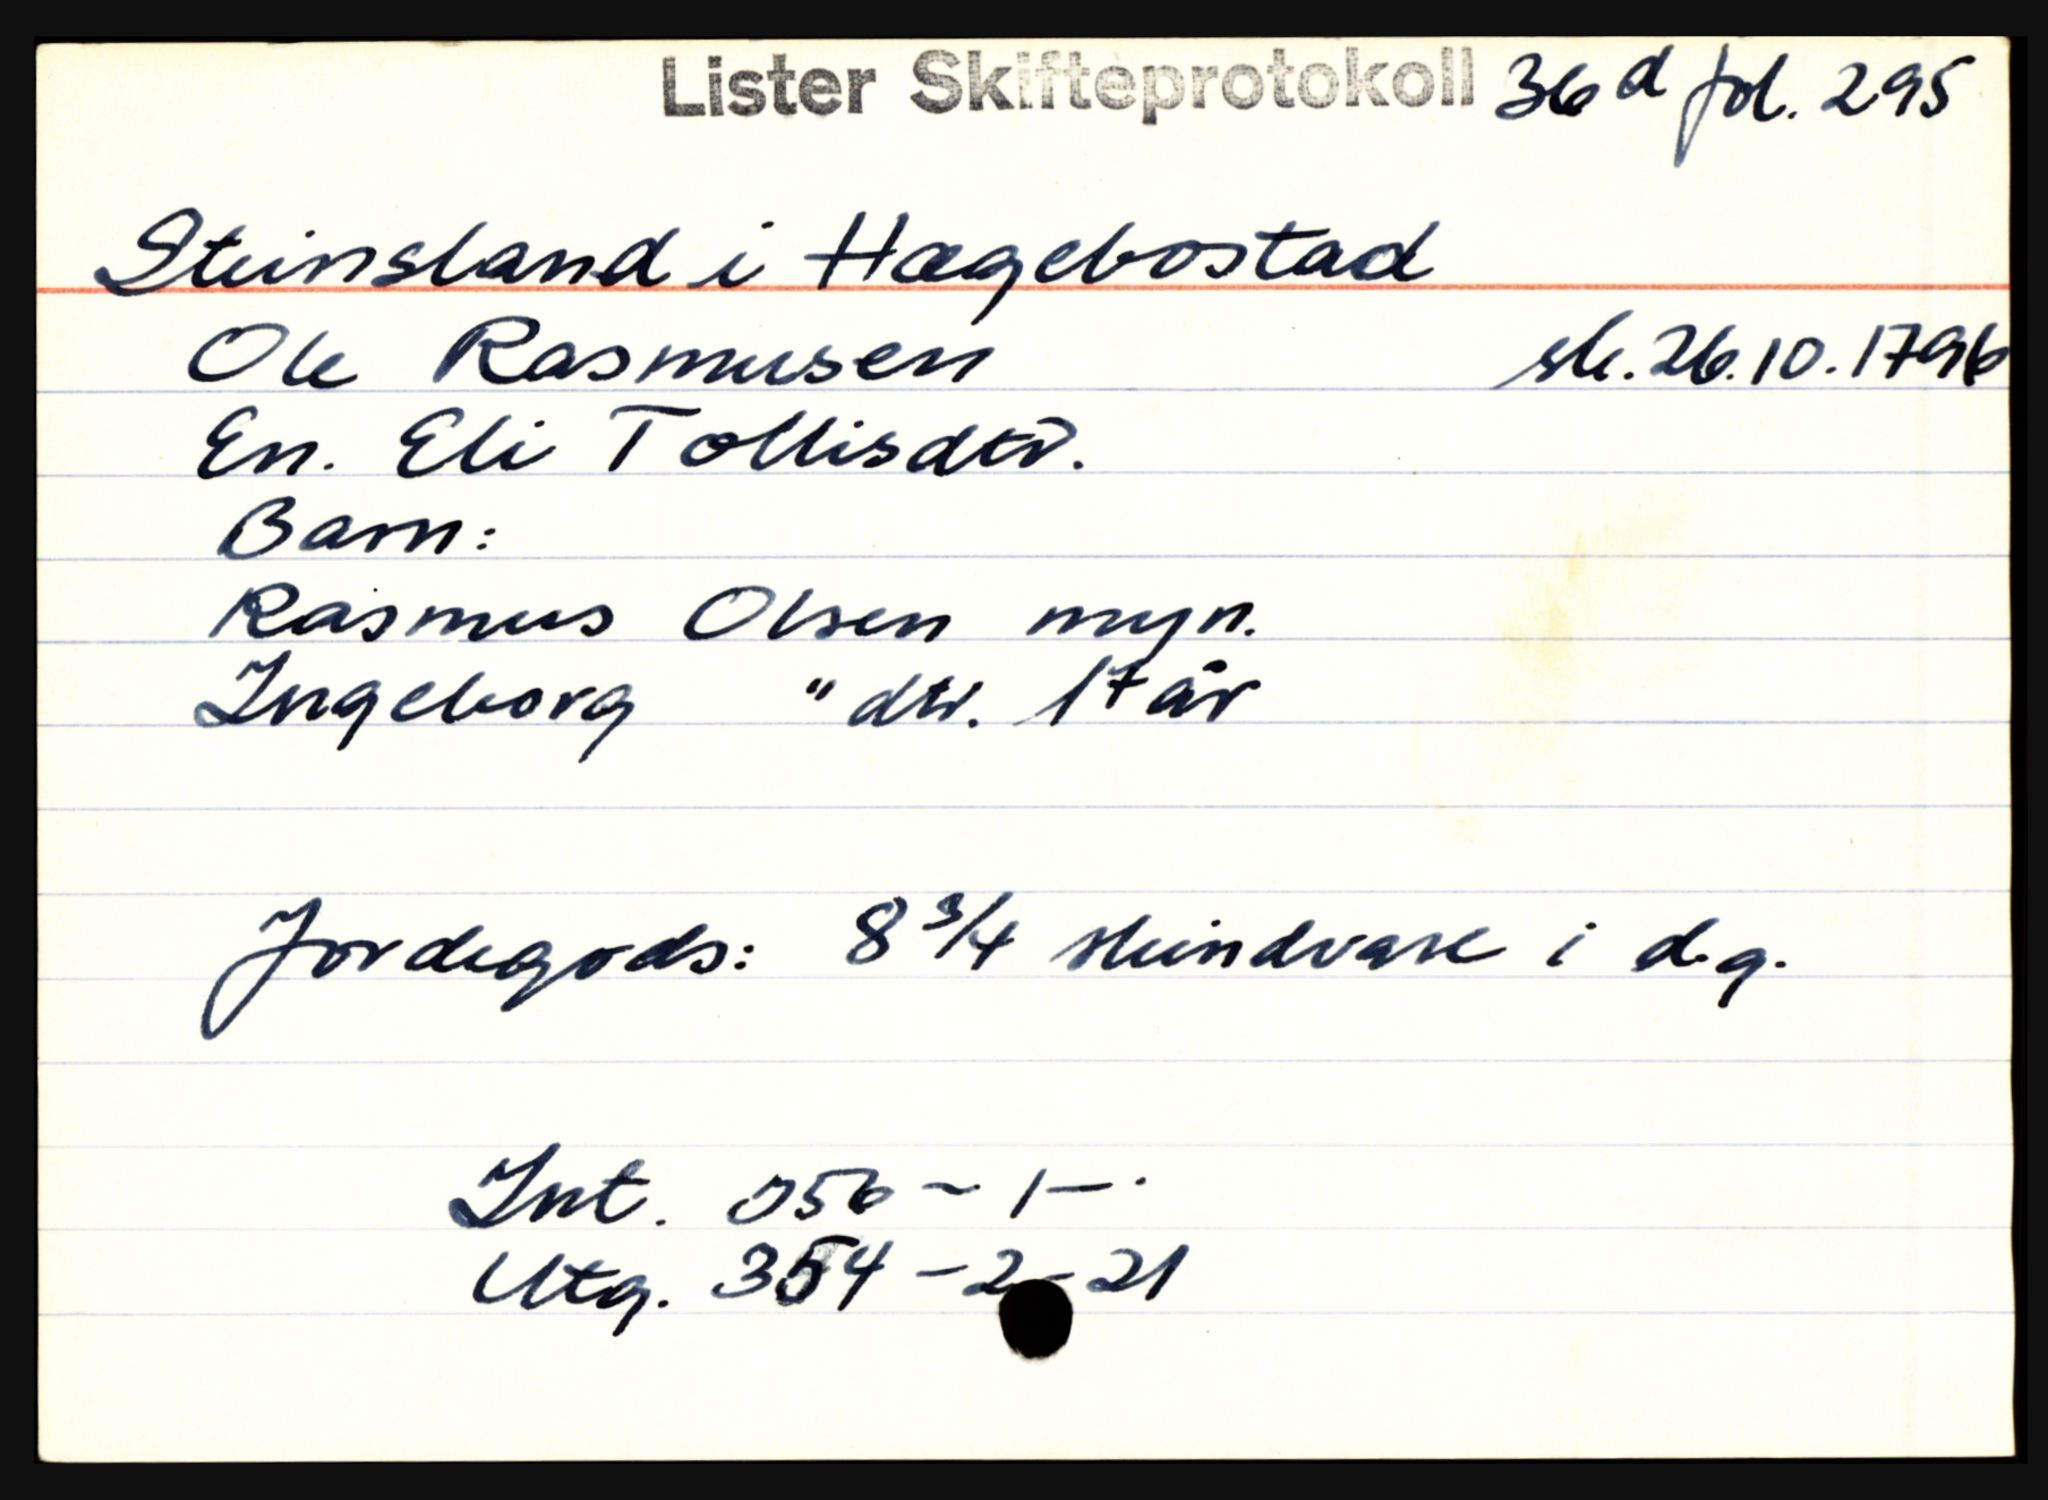 Lister Skifteprotokoll 36d fol. 295
Steinsland i Hægebostad
Ole Rasmusen sk. 26.10.1796
En. Eli Tollisdtr.
Barn:
Rasmus Olsen myn.
Ingeborg " dtr. 17 år
Jordegods: 8 3/4 skindvare i d.g.
Int. 356 - 1 - .
Utg. 354 - 2 - 21